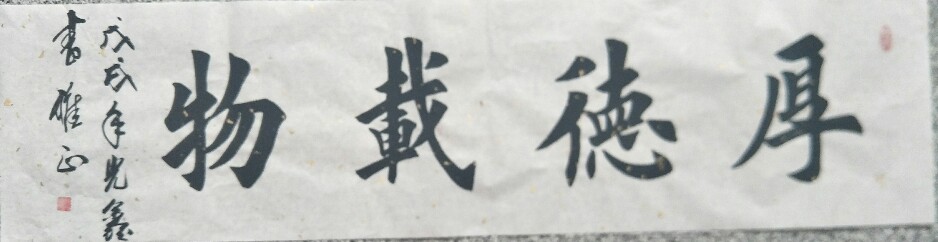 厚德載物
戊戌年光鑫
書雅正